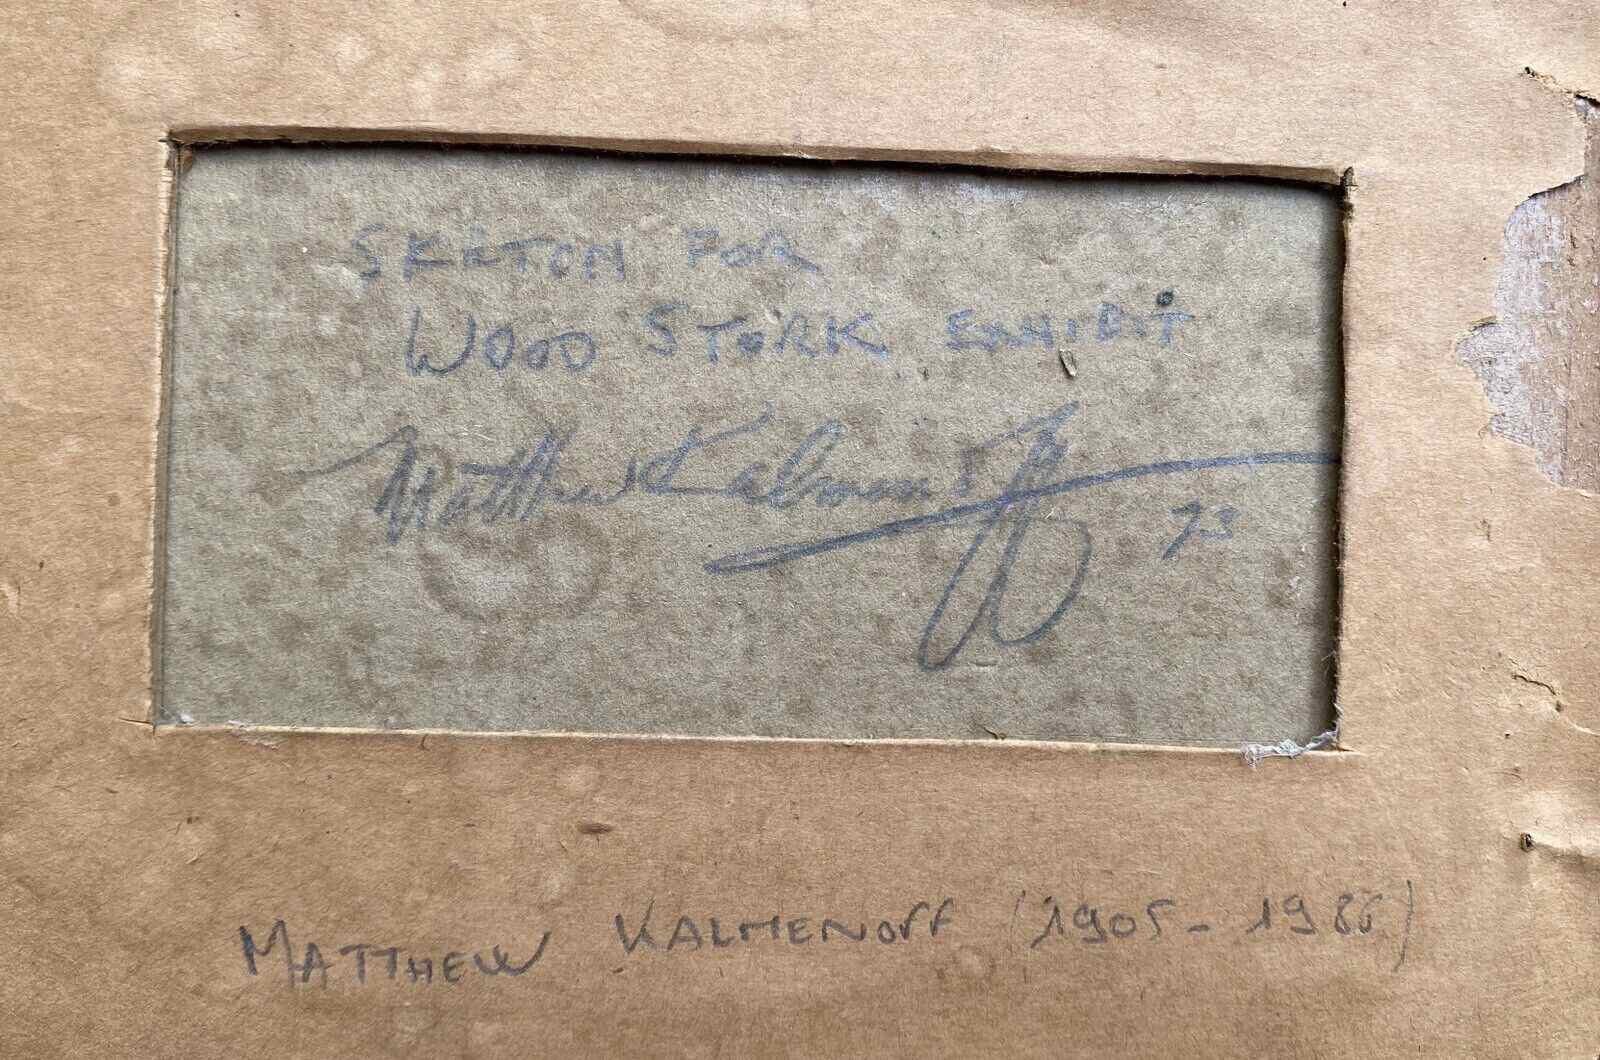 SKETCH FOR
WOOD STORK EXHIBIT
Matthew Kalmenoff
73
MATTHEW KALMENOFF (1905 - 1986)